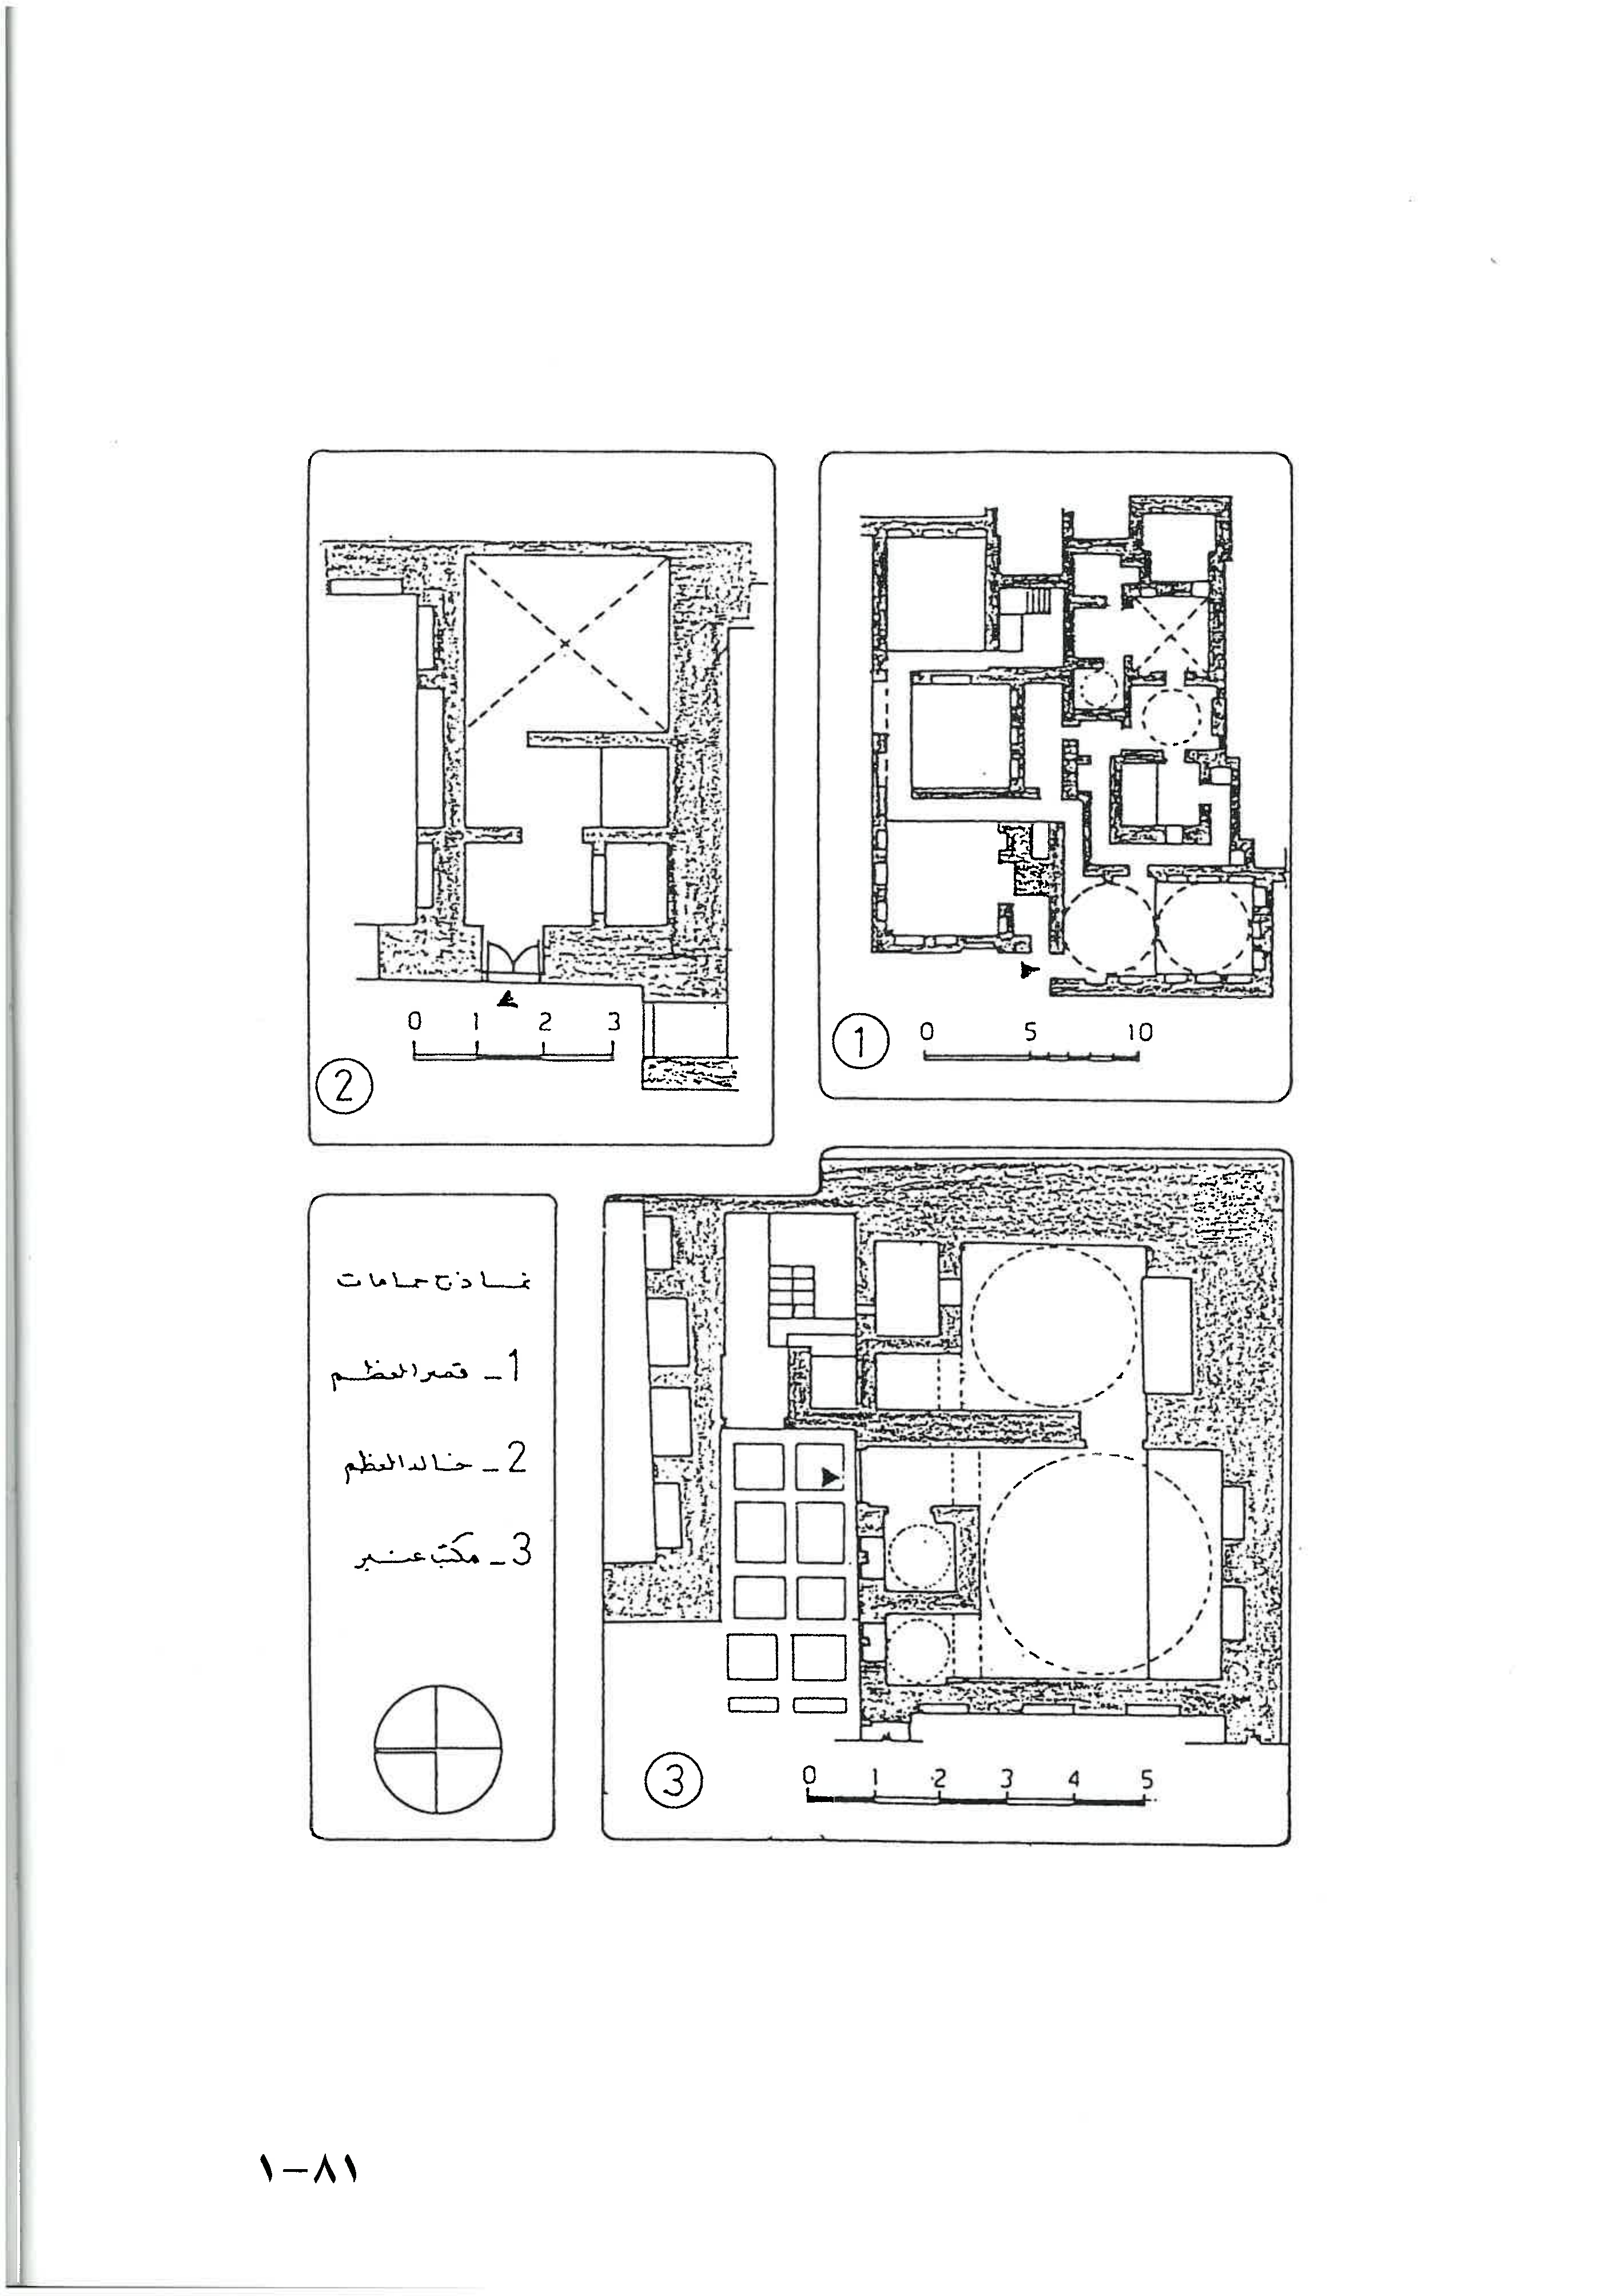 0 1 2 3
2
0 5 10
1
نماذج حمامات
1ـ قصر العظم
2ـ خالد العظم
3ـ مكتب عنبر
3
0 1 2 3 4 5
١-٨١